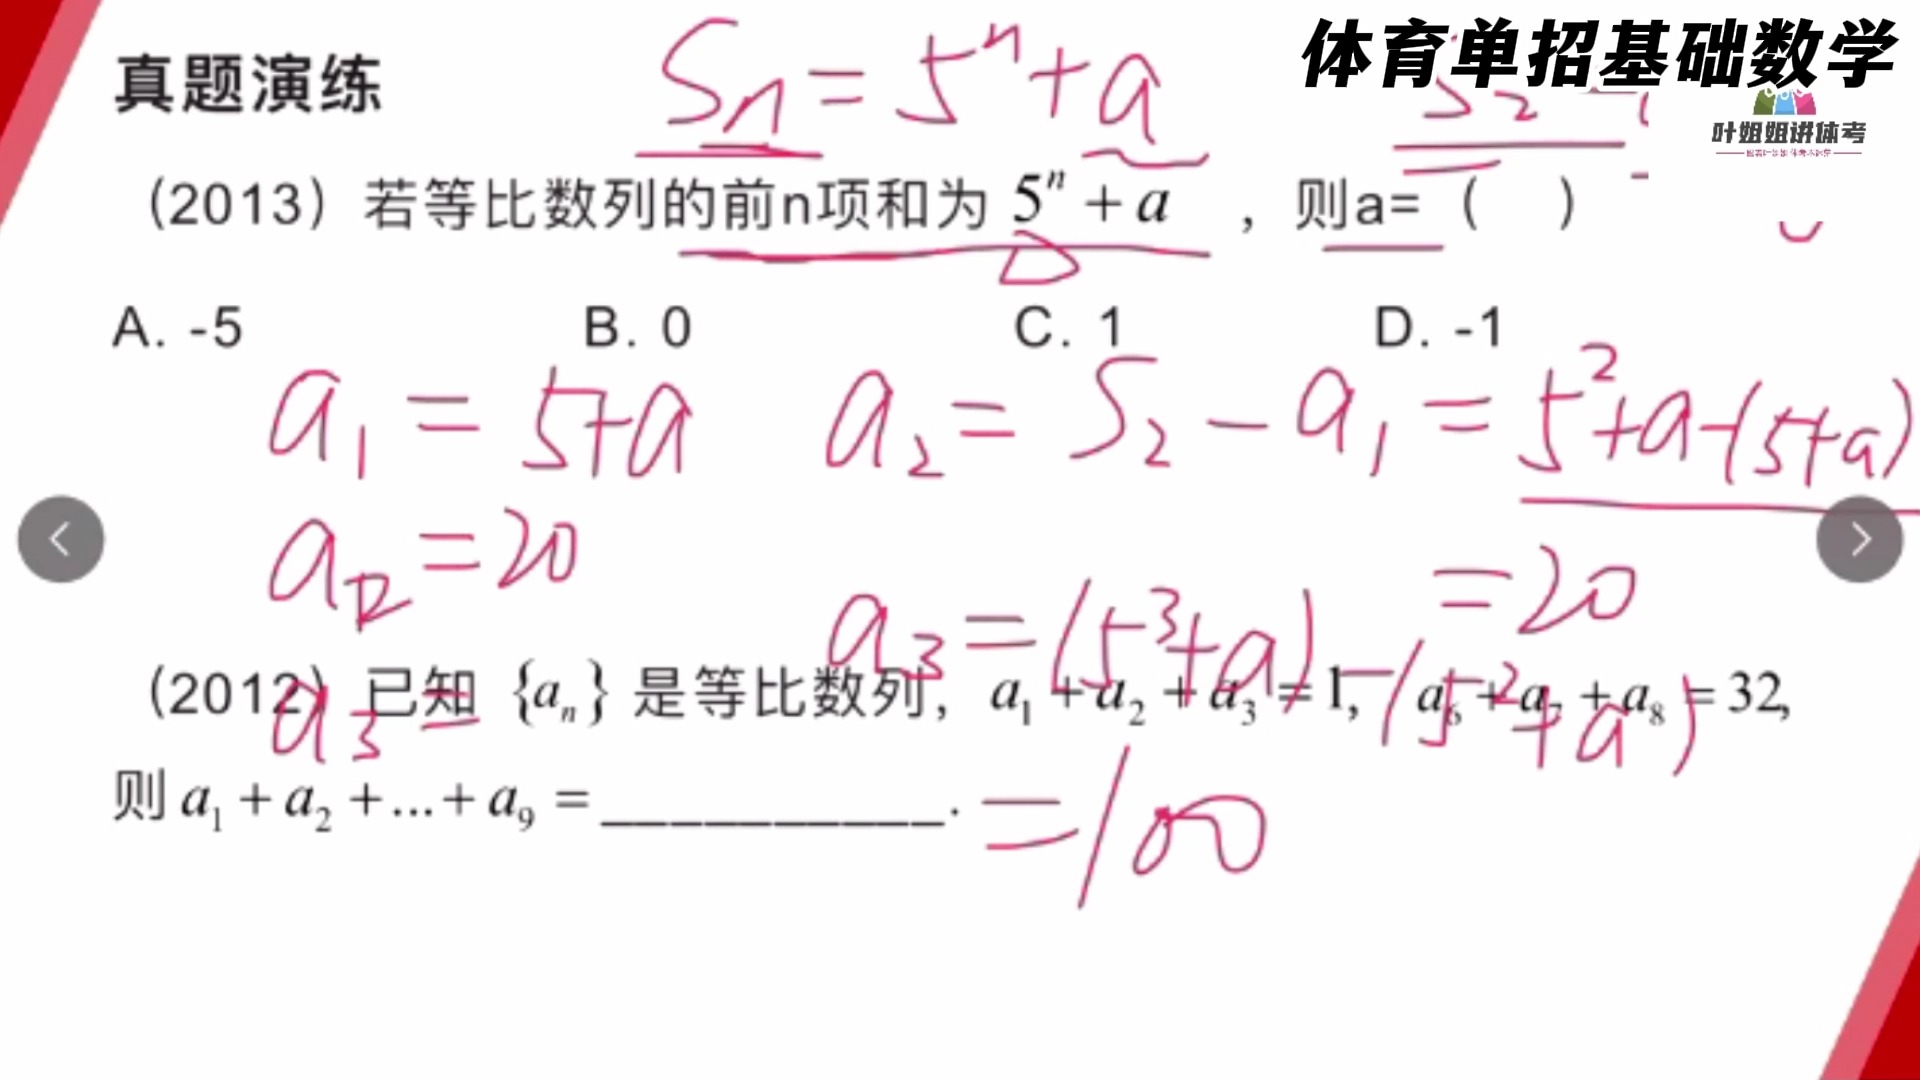 体育单招基础数学
真题演练
Sn = 5ⁿ + a
叶姐姐讲体考
（2013）若等比数列的前n项和为 5ⁿ + a ，则a=（ ）
A. -5 B. 0 C. 1 D. -1
a₁ = 5+a a₂ = S₂ - a₁ = 5²+a-(5+a)
a₂ = 20
= 20
a₃ = (5³+a) - (5²+a)
（2012）已知 {aₙ} 是等比数列，a₁ + a₂ + a₃ = 1, a₆ + a₇ + a₈ = 32,
a₃ =
则 a₁ + a₂ + ... + a₉ = __________.
= 100